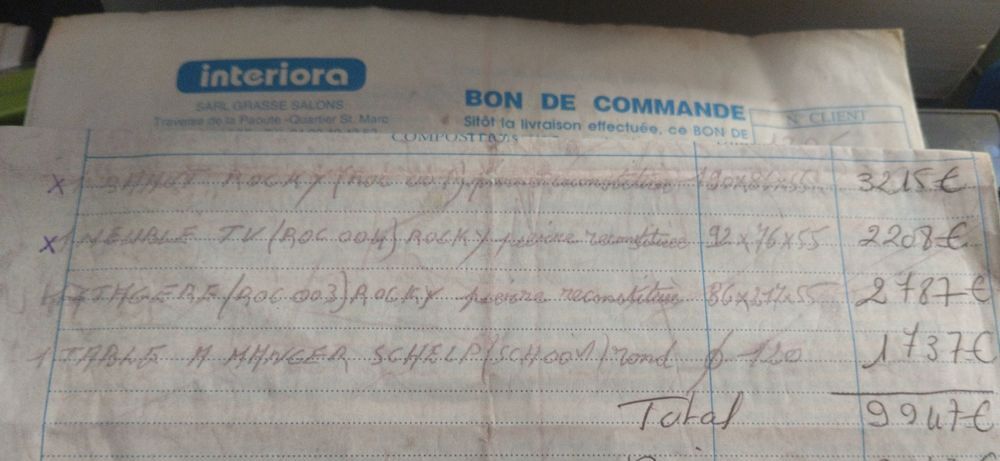 interiora
SARL GRASSE SALONS
Traverse de la Paoute - Quartier St. Marc
BON DE COMMANDE
Sitôt la livraison effectuée, ce BON DE
N° CLIENT
X 1 BAHUT ROCKY (ROC 001) pierre reconstituée 190x87x55 3215€
X 1 MEUBLE TV (ROC 004) ROCKY pierre reconstituée 92x76x55 2208€
ETAGERE (ROC 003) ROCKY pierre reconstituée 2787€
1 TABLE A MANGER SCHELP (SCH001) rond ϕ 120 1737€
Total 9947€